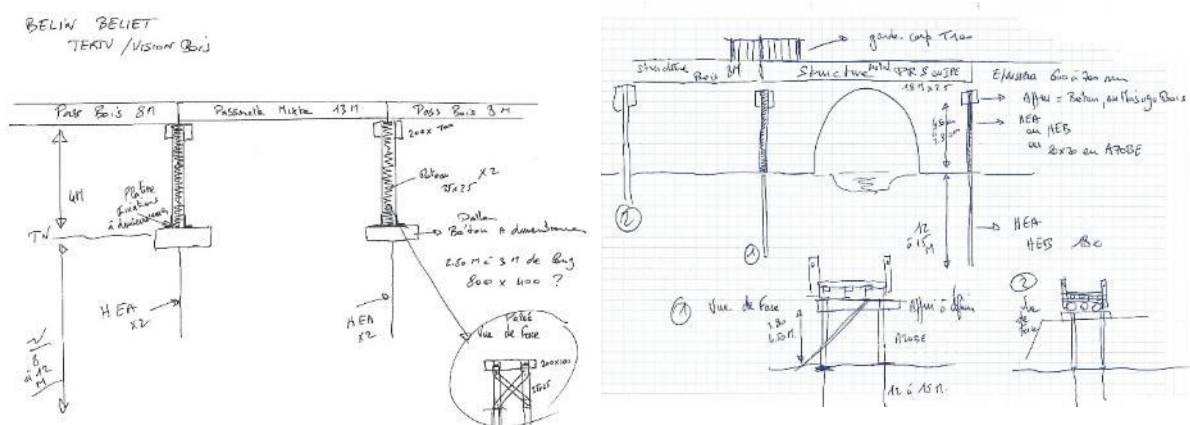 BELIN BELIET
TERTU / VISION Bois
Pass Bois 8M
Passerelle Mixte 13M
Pass Bois 8M
200x100
4M
Platine
fixations
à dimensionner
Poteau x2
25x25
TN
Dalle
Béton A dimensionner
2.50 M à 3 M de long
800 x 400 ?
HEA
x2
HEA
x2
8
à 12
M
Palée
Vue de Face
200x100
25x25
garde-corp T100
Structure
Bois 8M
Structure metal PRS ou IPE
18M x 2.5
600 à 700 mm
Appui = Béton, ou Bois
HEA
ou HEB
ou 20x20 en AZOBE
2
1
12
à 15
M
HEA
HEB 180
1 Vue de Face
Appui à définir
AZOBE
12 à 15 M.
2
Vue
de
Face